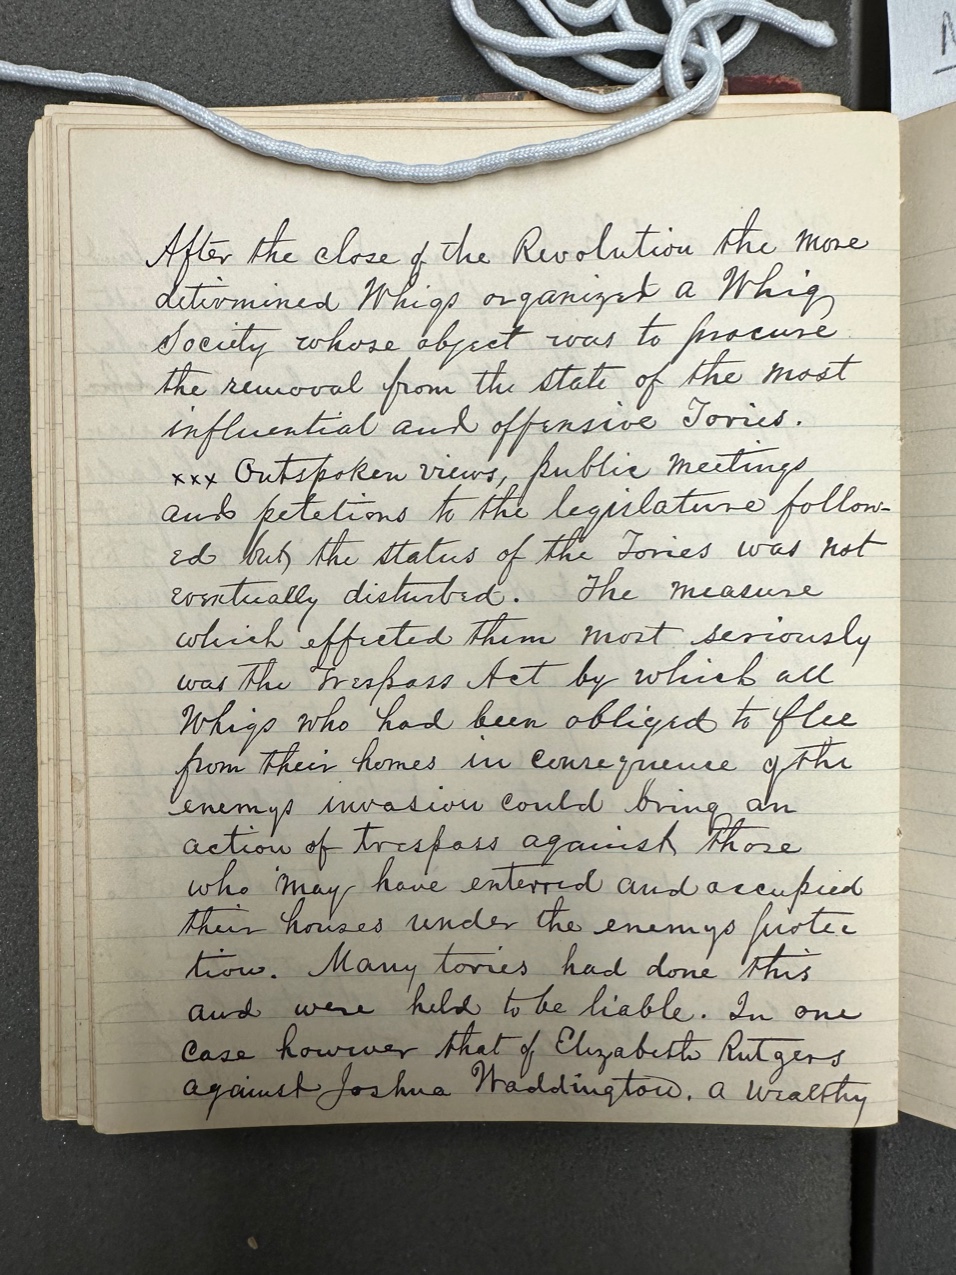 After the close of the Revolution the more
determined Whigs organized a Whig
Society whose object was to procure
the removal from the state of the most
influential and offensive Tories.
xxx Outspoken views, public meetings
and petetions to the legislature follow-
ed but, the status of the Tories was not
eventually disturbed. The measure
which effected them most seriously
was the Trespass Act by which all
Whigs who had been obliged to flee
from their homes in consequence of the
enemys invasion could bring an
action of trespass against those
who may have enterred and occupied
their houses under the enemys protec
tion. Many tories had done this
and were held to be liable. In one
case however that of Elizabeth Rutgers
against Joshua Waddington. a wealthy